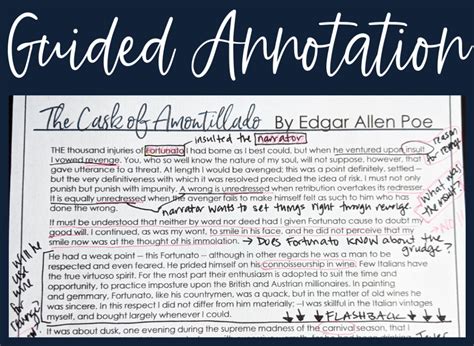 Guided Annotation
The Cask of Amontillado By Edgar Allen Poe
insulted the narrator
THE thousand injuries of Fortunato I had borne as I best could, but when he ventured upon insult,
I vowed revenge. You, who so well know the nature of my soul, will not suppose, however, that
gave utterance to a threat. At length I would be avenged; this was a point definitely, settled –
but the very definitiveness with which it was resolved precluded the idea of risk. I must not only
punish but punish with impunity. A wrong is unredressed when retribution overtakes its redresser.
It is equally unredressed when the avenger fails to make himself felt as such to him who has
done the wrong.
narrator wants to set things right through revenge
reason for revenge
What was the insult?
It must be understood that neither by word nor deed had I given Fortunato cause to doubt my
good will. I continued, as was my wont, to smile in his face, and he did not perceive that my
smile now was at the thought of his immolation.
→ Does Fortunato KNOW about the grudge?
He had a weak point – this Fortunato – although in other regards he was a man to be
respected and even feared. He prided himself on his connoisseurship in wine. Few Italians have
the true virtuoso spirit. For the most part their enthusiasm is adopted to suit the time and
opportunity, to practise imposture upon the British and Austrian millionaires. In painting
and gemmary, Fortunato, like his countrymen, was a quack, but in the matter of old wines he
was sincere. In this respect I did not differ from him materially; – I was skillful in the Italian vintages
myself, and bought largely whenever I could.
will he use wine for revenge?
↓ ↓ ↓ FLASHBACK ↓ ↓ ↓
It was about dusk, one evening during the supreme madness of the carnival season, that I